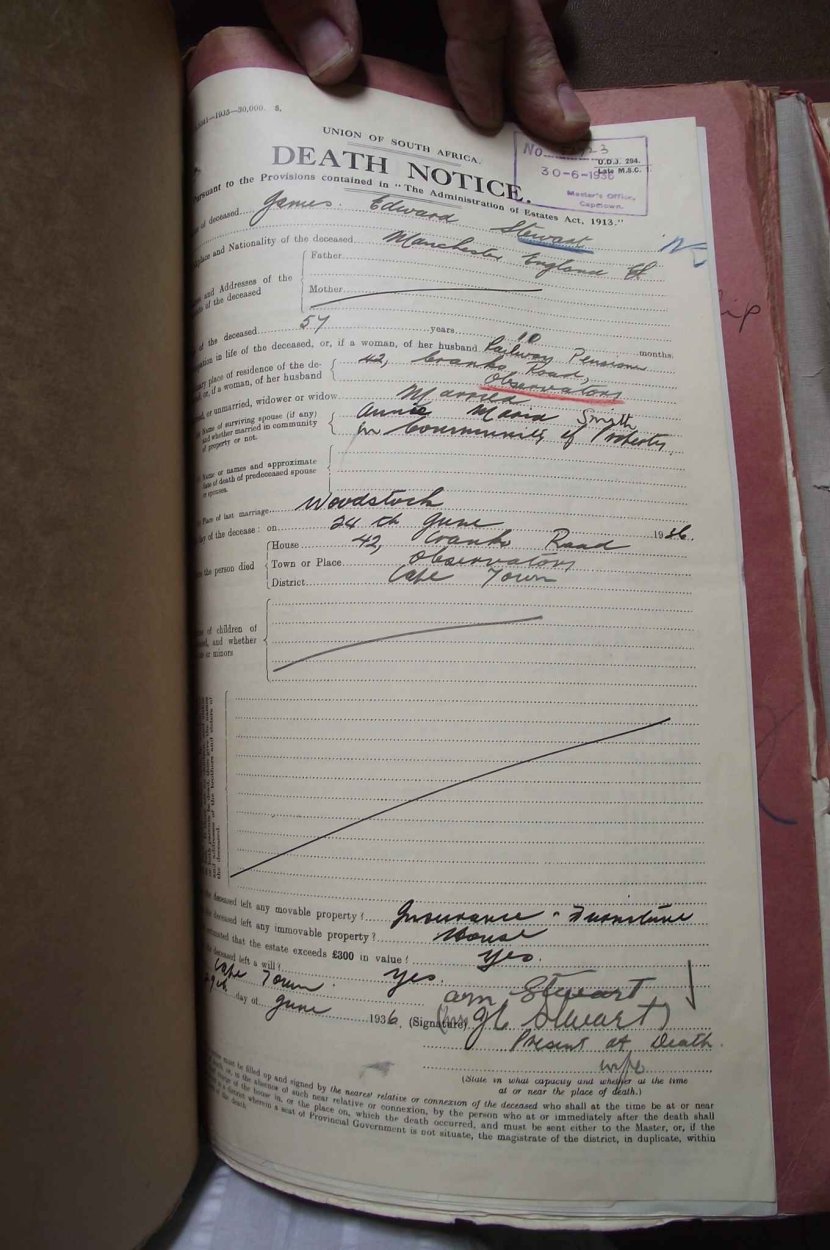 1935—30,000. S.
UNION OF SOUTH AFRICA.
DEATH NOTICE.
No
O.D.J. 294.
Late M.S.C. 1.
30-6-1936
Master's Office,
Capetown.
Pursuant to the Provisions contained in "The Administration of Estates Act, 1913."
of deceased James Edward Stewart
place and Nationality of the deceased Manchester England
Father
and Addresses of the
of the deceased
Mother
of the deceased 57 years 10 months.
in life of the deceased, or, if a woman, of her husband Railway Pensioner
place of residence of the de-
or, if a woman, of her husband
42, Cranko Road,
Observatory
or unmarried, widower or widow Married
Name of surviving spouse (if any)
and whether married in community
of property or not.
Annie Maria Smith
in Community of Property
Name or names and approximate
date of death of predeceased spouse
or spouses.
Place of last marriage Woodstock
of the decease: on 24 th June 1936.
the person died
House 42, Cranko Road
Town or Place Observatory
District Cape Town
of children of
and whether
or minors
and addresses of the brothers and sisters of
the deceased.
the deceased left any movable property? Insurance - Furniture
the deceased left any immovable property? House
estimated that the estate exceeds £300 in value? Yes.
deceased left a will? Yes.
Cape Town
29th day of June 1936. (Signature)
Stewart
J E Stewart)
Present at Death
wife
(State in what capacity and whether at the time
at or near the place of death.)
must be filled up and signed by the nearest relative or connexion of the deceased who shall at the time be at or near
death, or, in the absence of such near relative or connexion, by the person who at or immediately after the death shall
charge of the house in, or the place on, which the death occurred, and must be sent either to the Master, or, if the
a district wherein a seat of Provincial Government is not situate, the magistrate of the district, in duplicate, within
of the death.